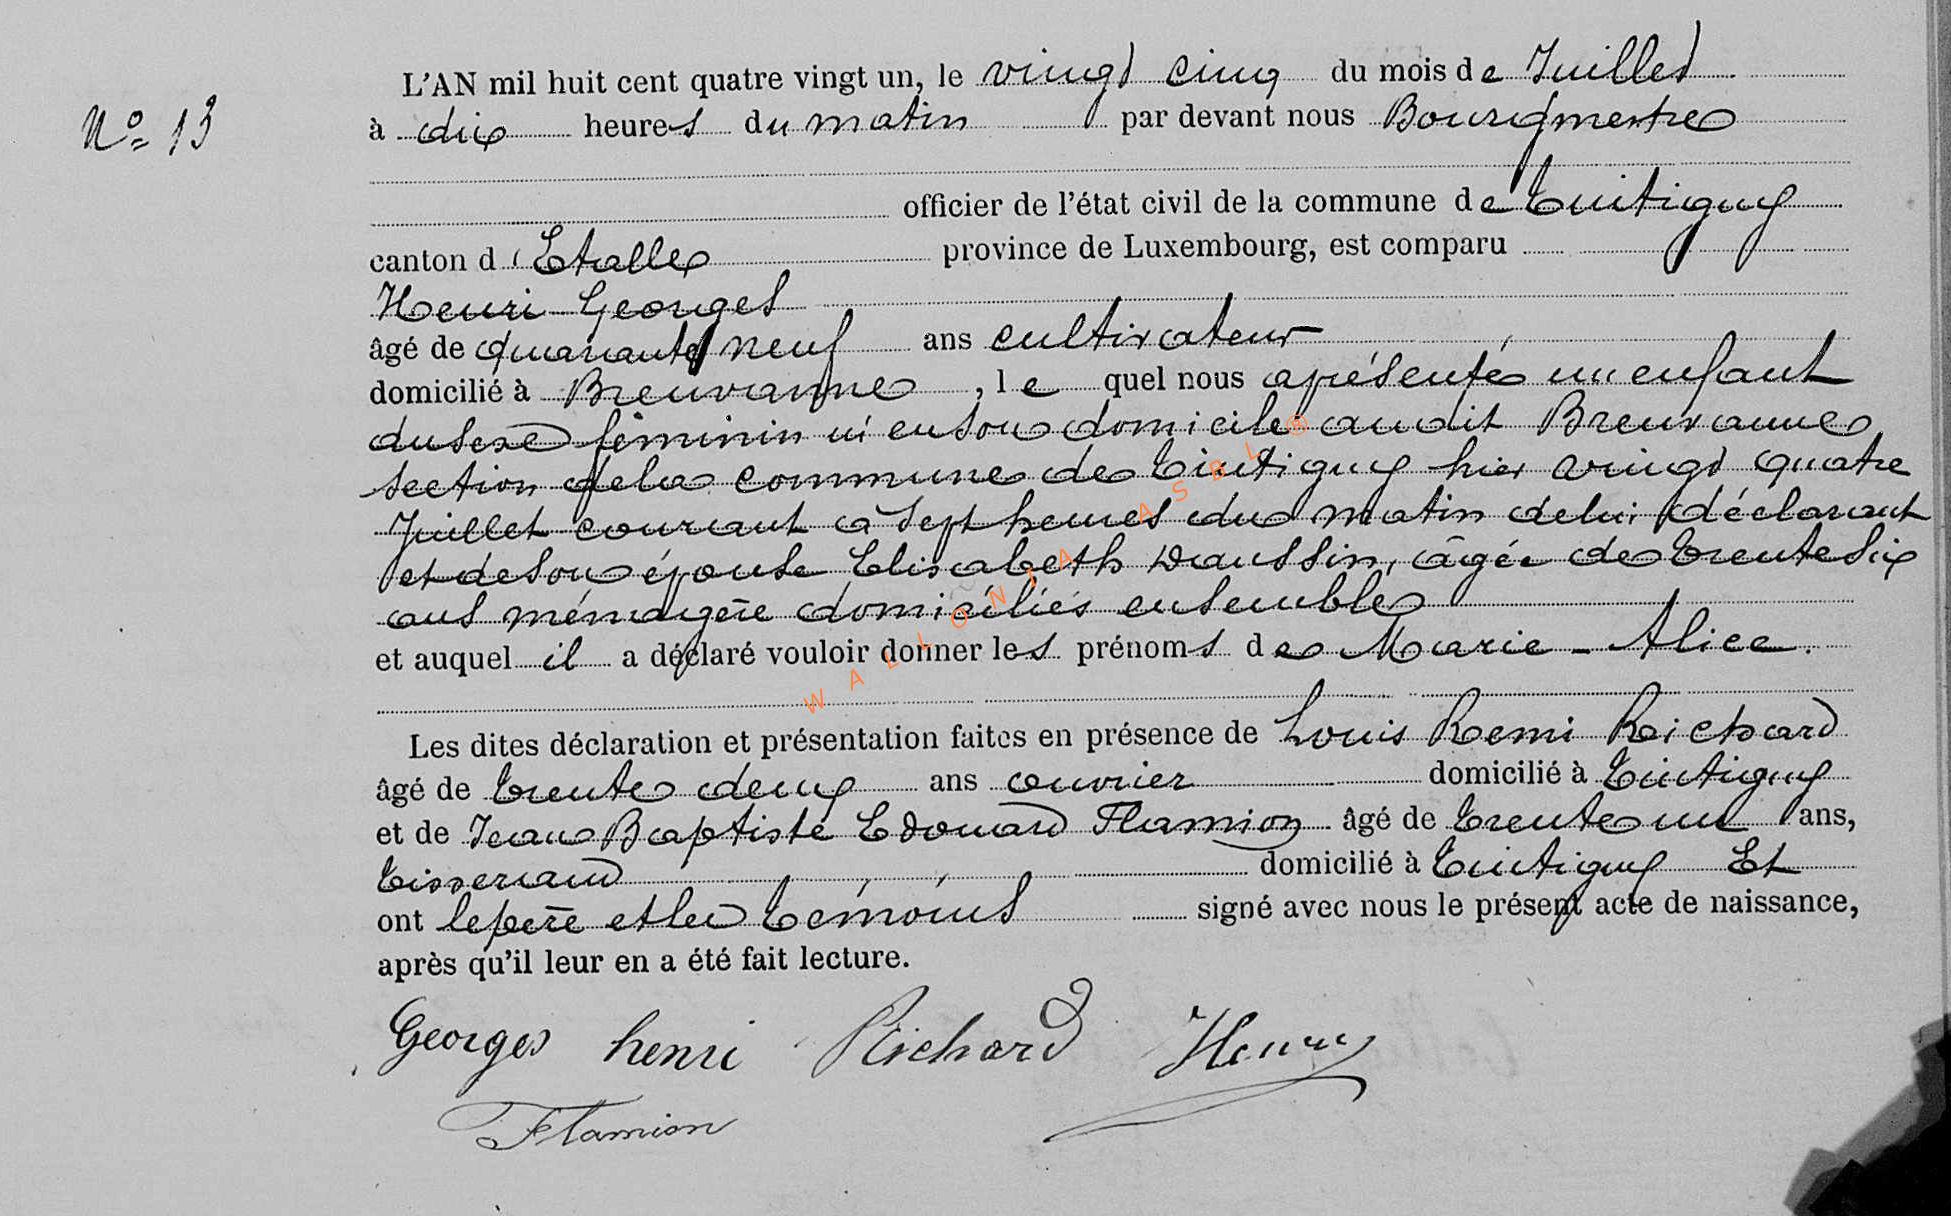 L'AN mil huit cent quatre vingt un, le vingt cinq du mois de Juillet
N° 13
à dix heures du matin par devant nous Bourgmestre
officier de l'état civil de la commune de Tintigny
canton d'Etalle province de Luxembourg, est comparu
Henri Georges
âgé de quarante neuf ans cultivateur
domicilié à Breuvanne, lequel nous a présenté un enfant
du sexe féminin né en son domicile audit Breuvanne
section de la commune de Tintigny hier vingt quatre
Juillet courant à sept heures du matin de lui déclarant
et de son épouse Elisabeth Daussin, âgée de trente six
ans ménagère domiciliés ensemble
et auquel il a déclaré vouloir donner les prénoms de Marie-Alice.
Les dites déclaration et présentation faites en présence de Louis Remi Richard
âgé de trente deux ans ouvrier domicilié à Tintigny
et de Jean Baptiste Edouard Flamion âgé de trente un ans,
tisserand domicilié à Tintigny Et
ont le père et les témoins signé avec nous le présent acte de naissance,
après qu'il leur en a été fait lecture.
Georges henri Richard Henry
Flamion
WALLONIA ASBL ®